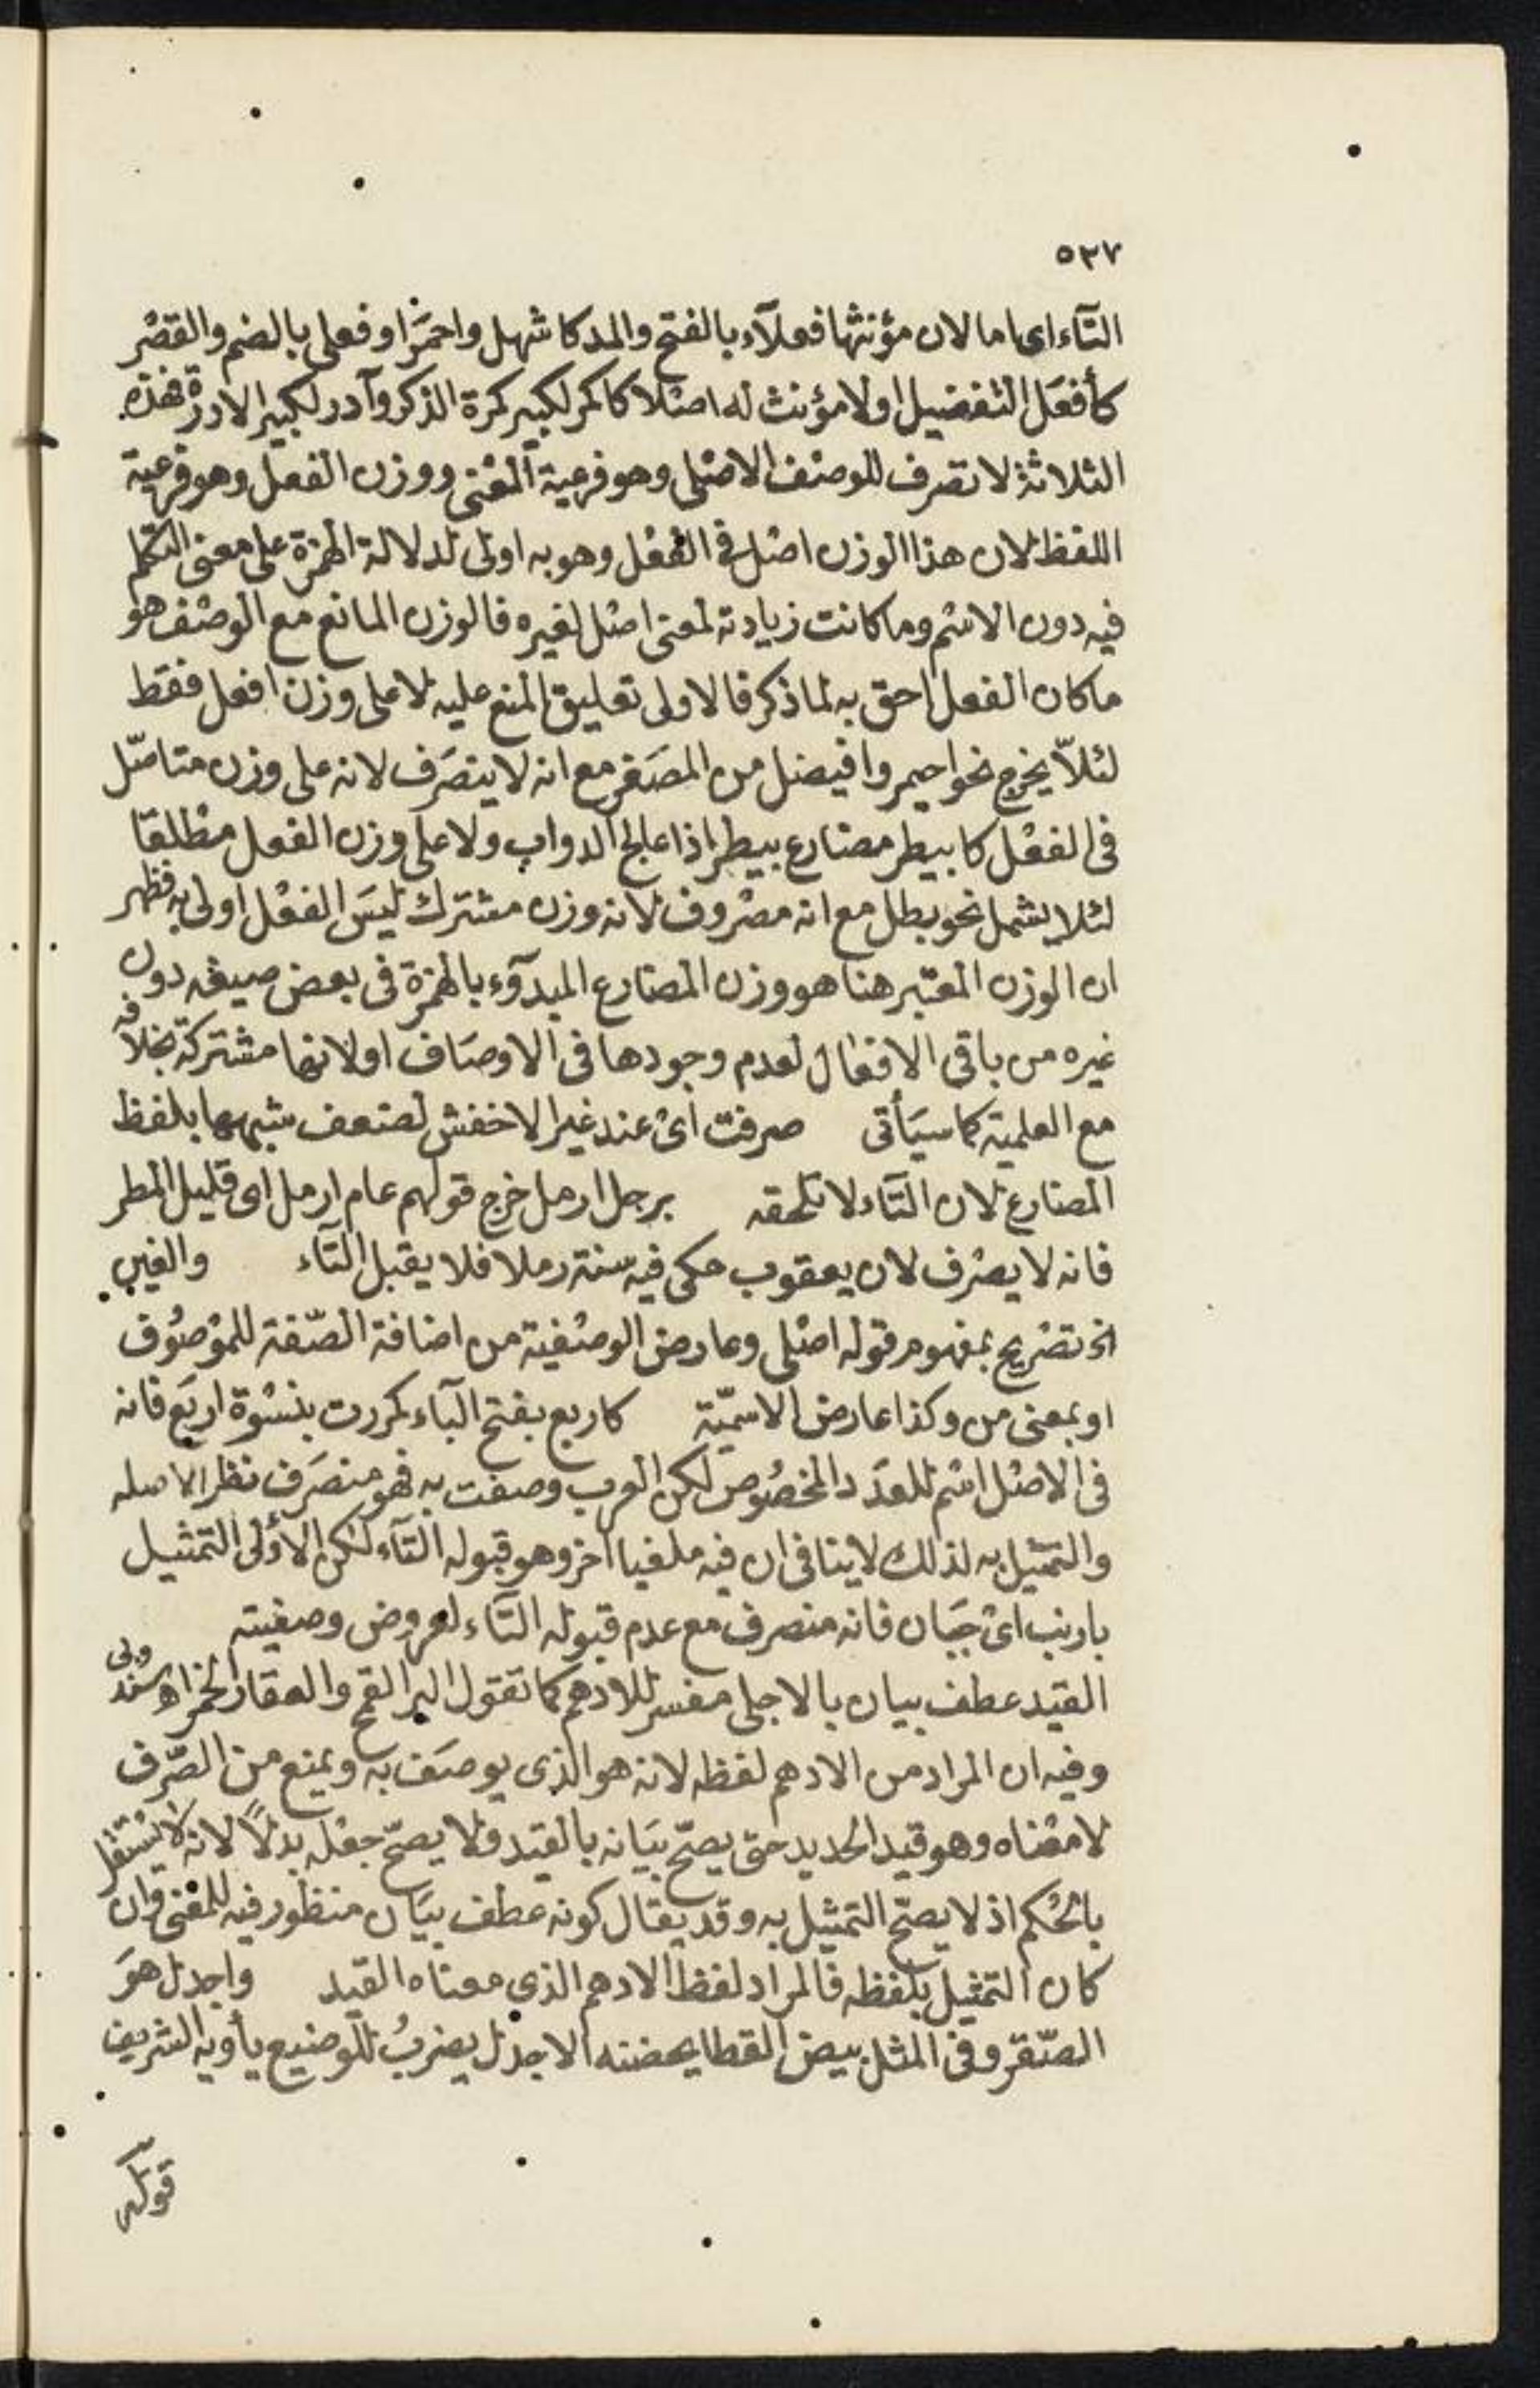 ٥٣٧
التآء اى اما لان مؤنثها فعلآء بالفتح والمد كاشهل واحمَر او فعلى بالضم والقصْر
كأفعَل التفضيل او لا مؤنث له اصْلا كاكمر لكبير كمرة الذكر وآدر لكبير الادرة فهذه
الثلاثة لا تصرف للوصْف الاصْلى وهو فرعية المعْنى ووزن الفعل وهو فرعية
اللفظ لان هذا الوزن اصْل فى الفعْل وهو به اولى لدلالة الهمزة على معنى التكلم
فيه دون الاسْم وما كانت زيادته لمعنى اصْل لغيره فالوزن المانع مع الوصْف هو
ما كان الفعل احق به لما ذكر فالاولى تعليق المنع عليه لا على وزن افعل فقط
لئلاّ يخرج نحو احيمر وافيضل من المصَغر مع انه لا ينصَرف لانه على وزن متاصّل
فى الفعْل كابيطر مضارع بيطر اذا عالج الدواب ولا على وزن الفعل مطْلقا
لئلا يشمل نحو بطل مع انه مصْروف لانه وزن مشترك ليسَ الفعْل اولى به فظهر
ان الوزن المعتبر هنا هو وزن المضارع المبدوء بالهمزة فى بعض صيغه دون
غيره من باقى الافعال لعدم وجودها فى الاوصَاف او لانها مشتركة بخلافه
مع العلمية كما سيَأتى صرفت اىْ عند غير الاخفش لضعف شبهها بلفظ
المضارع لان التآء لا تلحقه برجل ارمل خرج قولهم عام ارمل اى قليل المطر
فانه لا يصْرف لان يعقوب حكى فيه سنة رملا فلا يقبل التآء والغين
الخ تصْريح بمفهوم قوله اصْلى وعارض الوصْفية من اضافة الصّفة للموْصُوف
او بمعنى من وكذا عارض الاسميّة كاربع بفتح البآء كمررت بنسْوة اربَع فانه
فى الاصْل اسْم للعدَد المخصُوص لكن العرب وصفت به فهو منصَرف نظر الاصله
والتمثيل به لذلك لا ينافى ان فيه ملغيا اخر وهو قبوله التآء لكن الأوْلى التمثيل
بارنب اىْ جبَان فانه منصرف مع عدم قبوله التآء لعروض وصفيته
القيد عطف بيان بالاجلى مفسر للادهم كما تقول البر القمح والعقار الخمر اهـ سندوبى
وفيه ان المراد من الادهم لفظه لانه هو الذى يوصَف به ويمنع من الصّرف
لا معْناه وهو قيد الحديد حتى يصحّ بيَانه بالقيد ولا يصحّ جعْله بدلاً لانه لا يسْتقل
بالحُكم اذ لا يصحّ التمثيل به وقد يقال كونه عطف بيَان منظور فيه للمعْنى وان
كان التمثيل بلفظه فالمراد لفظ الادهم الذى معناه القيد واجدل هوَ
الصّقر وفى المثل بيض القطا يحضنه الاجدل يضربُ للوضيع يأويه الشريف
قوله